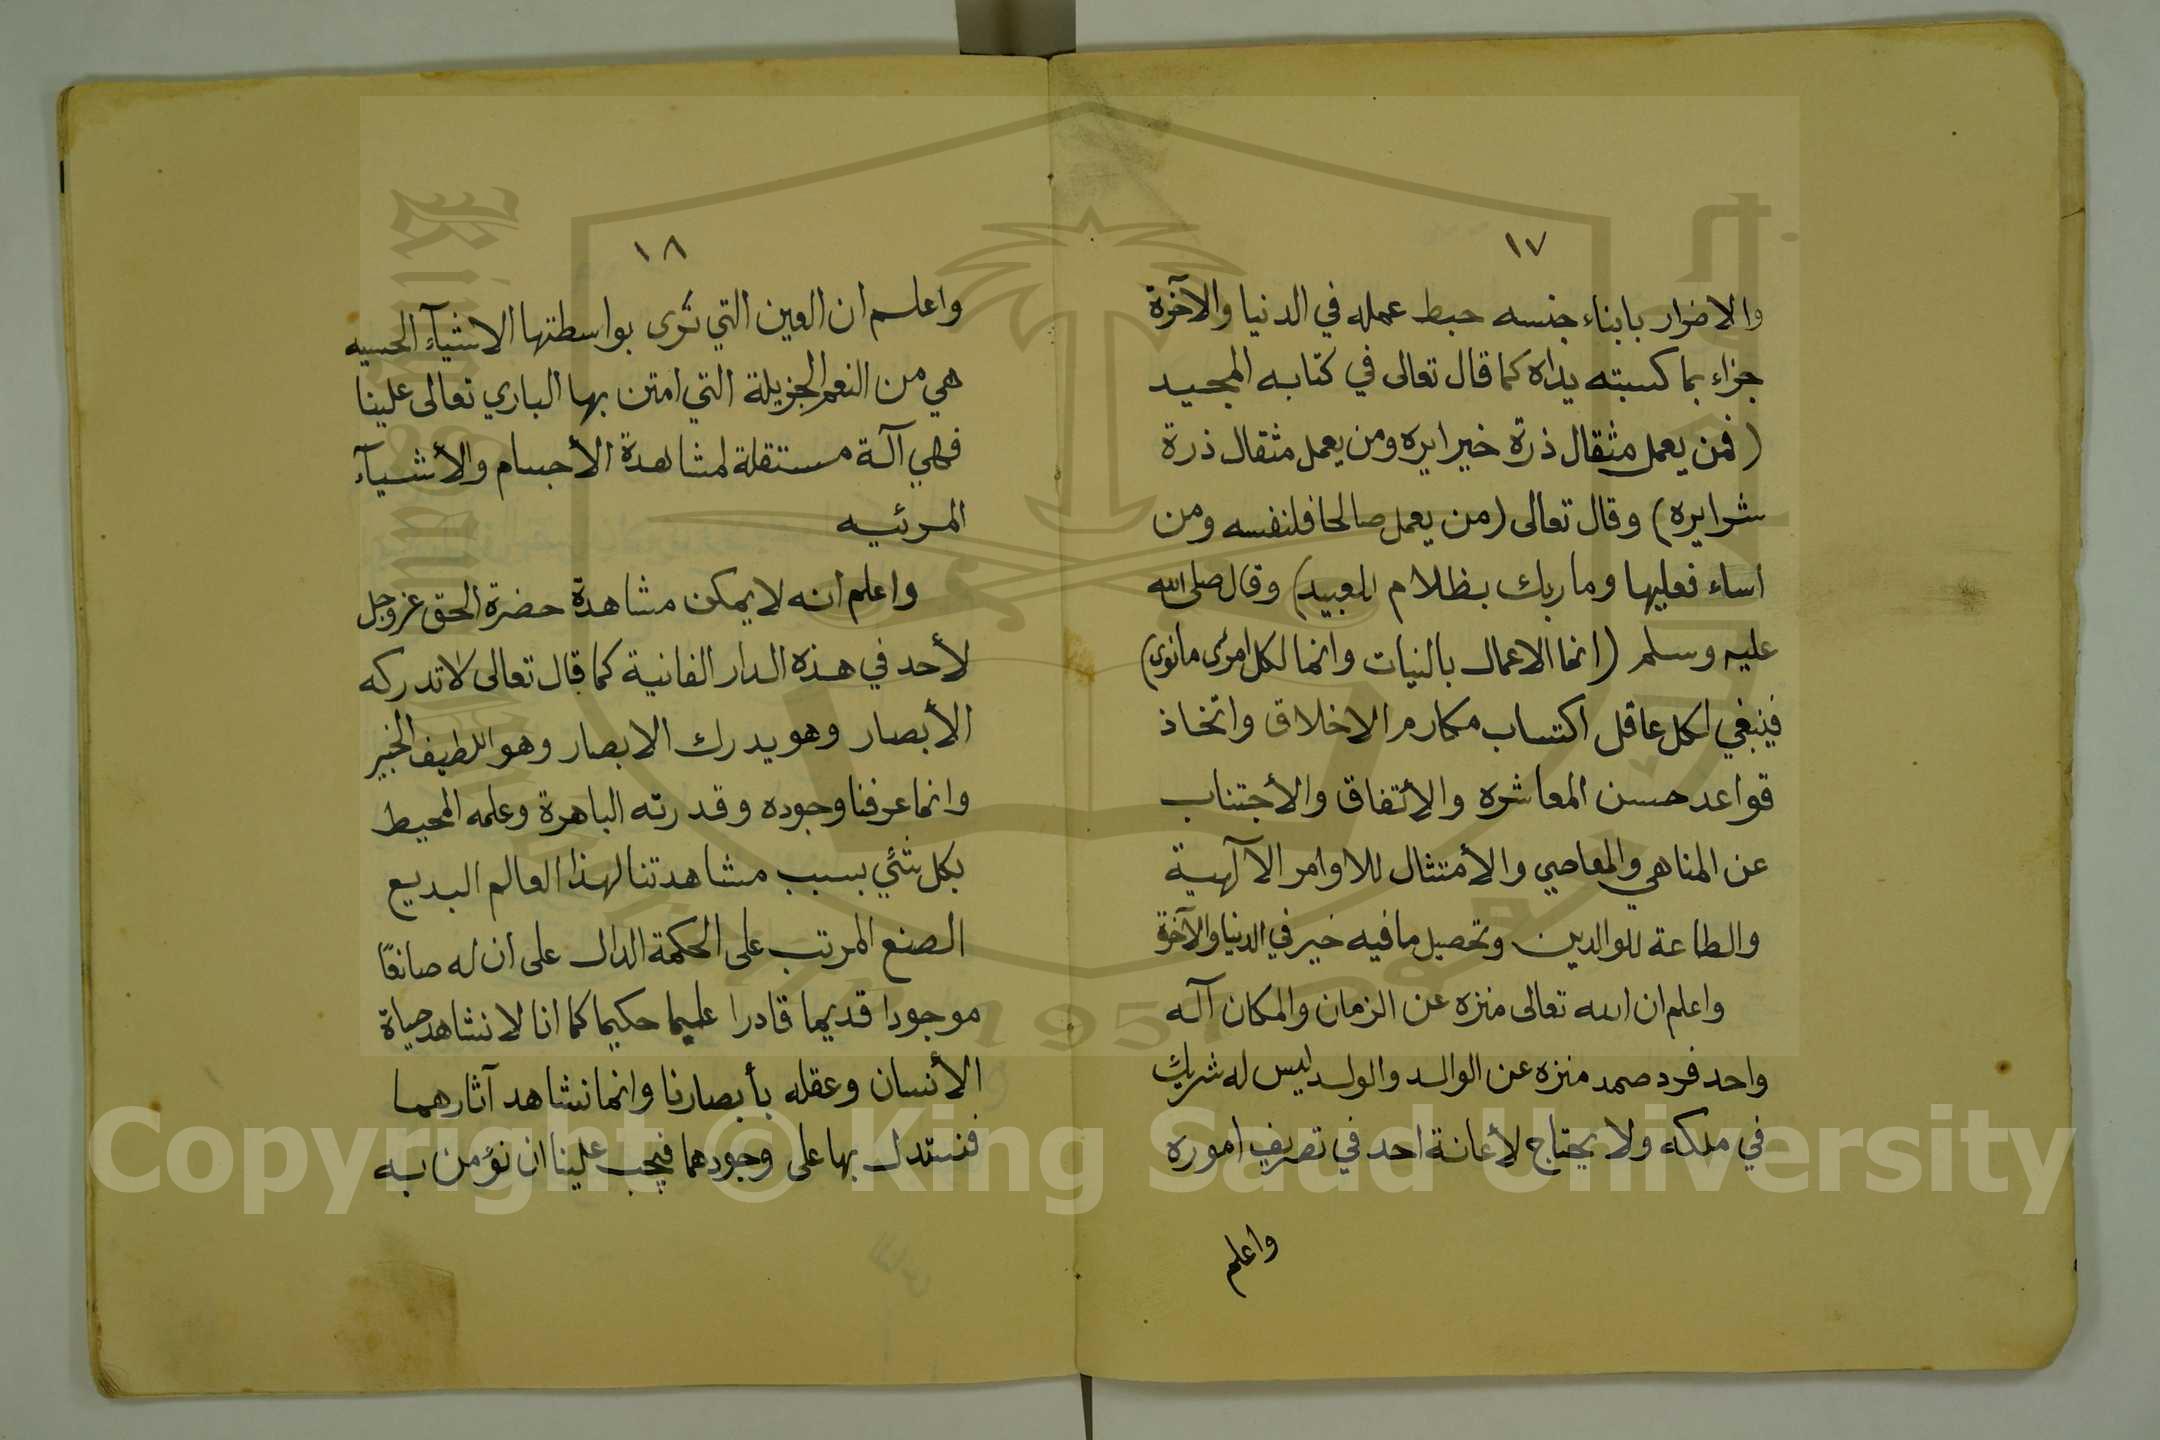 ١٧
والاضرار بابناء جنسه حبط عمله في الدنيا والآخرة
جزاء بما كسبته يداه كما قال تعالى في كتابه المجيد
(فمن يعمل مثقال ذرة خيرا يره ومن يعمل مثقال ذرة
شرا يره) وقال تعالى (من يعمل صالحا فلنفسه ومن
اساء فعليها وما ربك بظلام للعبيد) وقال صلى الله
عليه وسلم (انما الاعمال بالنيات وانما لكل امرئ ما نوى)
فينبغي لكل عاقل اكتساب مكارم الاخلاق واتخاذ
قواعد حسن المعاشره والأتفاق والأجتناب
عن المناهي والمعاصي والأمتثال للاوامر الآلهية
والطاعة للوالدين وتحصيل ما فيه خير في الدنيا والآخرة
واعلم ان الله تعالى منزه عن الزمان والمكان آله
واحد فرد صمد منزه عن الوالد والولد ليس له شريك
في ملكه ولا يحتاج لأعانة احد في تصريف اموره
واعلم
١٨
واعلم ان العين التي تُرى بواسطتها الاشيآء الحسيه
هي من النعم الجزيلة التي امتن بها الباري تعالى علينا
فهي آلة مستقلة لمشاهدة الأجسام والأشيآء
المرئيه
واعلم انه لا يمكن مشاهدة حضرة الحق عز وجل
لأحد في هذه الدار الفانية كما قال تعالى لا تدركه
الأبصار وهو يدرك الابصار وهو اللطيف الخبير
وانما عرفنا وجوده وقدرته الباهرة وعلمه المحيط
بكل شئي بسبب مشاهدتنا لهذا العالم البديع
الصنع المرتب على الحكمة الدال على ان له صانعًا
موجودا قديما قادرا عليما حكيما كما انا لا نشاهد حياة
الأنسان وعقله بأبصارنا وانما نشاهد آثارهما
فنستدل بها على وجودهما فيجب علينا ان نؤمن به
Copyright © King Saud University
1957